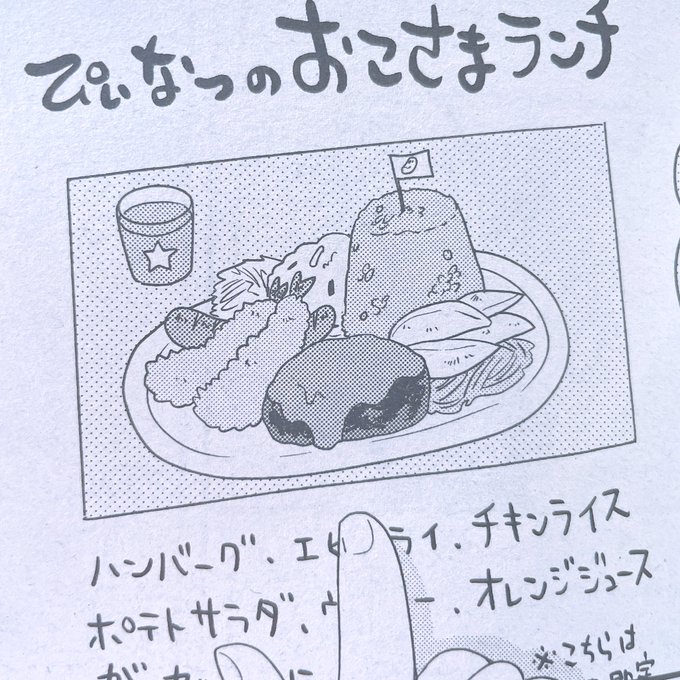 ぴぃなつのおこさまランチ
ハンバーグ、エビライ、チキンライス
ポテトサラダ、ウー、オレンジジュース
が
※こちらは